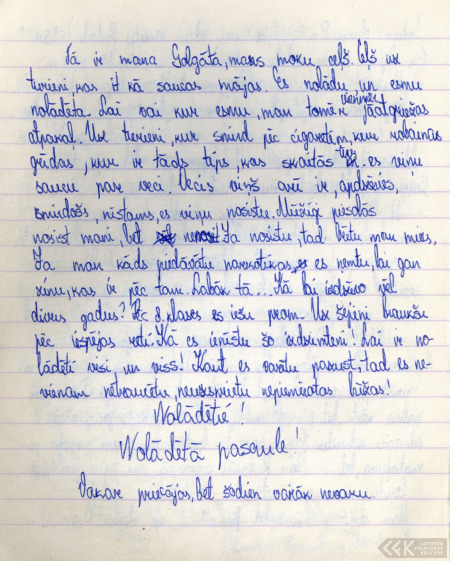 Tā ir mana Golgāta, manas moku ceļš. Ceļš uz
turieni, kas it kā saucas mājas. Es nolādu, un esmu
nolādēta. Lai vai kur esmu, man tomēr vienmēr jāatgriežas
atpakaļ. Uz turieni, kur smird pēc cigaretēm, kur
grīdas, kur ir tāds tips, kas skaitās tēvs es viņu
saucu par veci. Vecis viņš arī ir, apdzēries,
smirdošs, nīstams, es viņu nosistu. Mūžīgi piesolās
nosist mani, bet Ja nosistu, tad būtu man miers.
Ja man kāds piedāvātu narkotikas, es ņemtu, lai gan
zinu, kas ir pēc tam. Labāk tā... Kā lai izdzīvo vēl
divus gadus? Pēc 8. klases es iešu prom. Uz šejieni braukšu
pēc iespējas reti. Kā es ienīstu šo dzimteni! Lai ir no-
lādēti visi un viss! Kaut es varētu pazust, tad es ne-
vienam netraucētu, neuzspiestu nepiemērotas lūgas!
Nolādētie!
Nolādētā pasaule!
Vakar priecājos, bet šodien vairāk nevaru.
LATVIEŠU
FOLKLORAS
KRĀTUVE